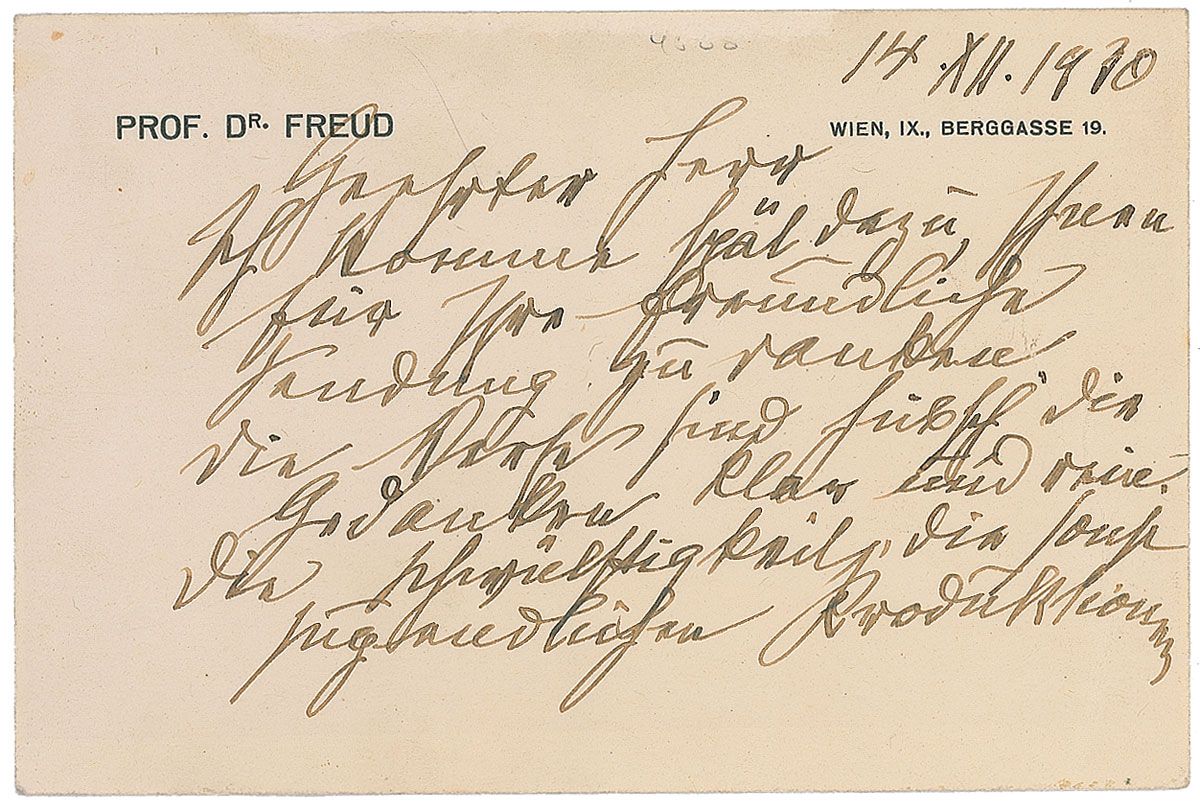 14.XII.1930
PROF. DR. FREUD
WIEN, IX., BERGGASSE 19.
Geehrter Herr
Ich komme spät dazu, Ihnen
für Ihre freundliche
Sendung zu danken
Die Verse sind hübsch die
Gedanken klar und rein.
Die die sonst
jugendlichen Produktionen